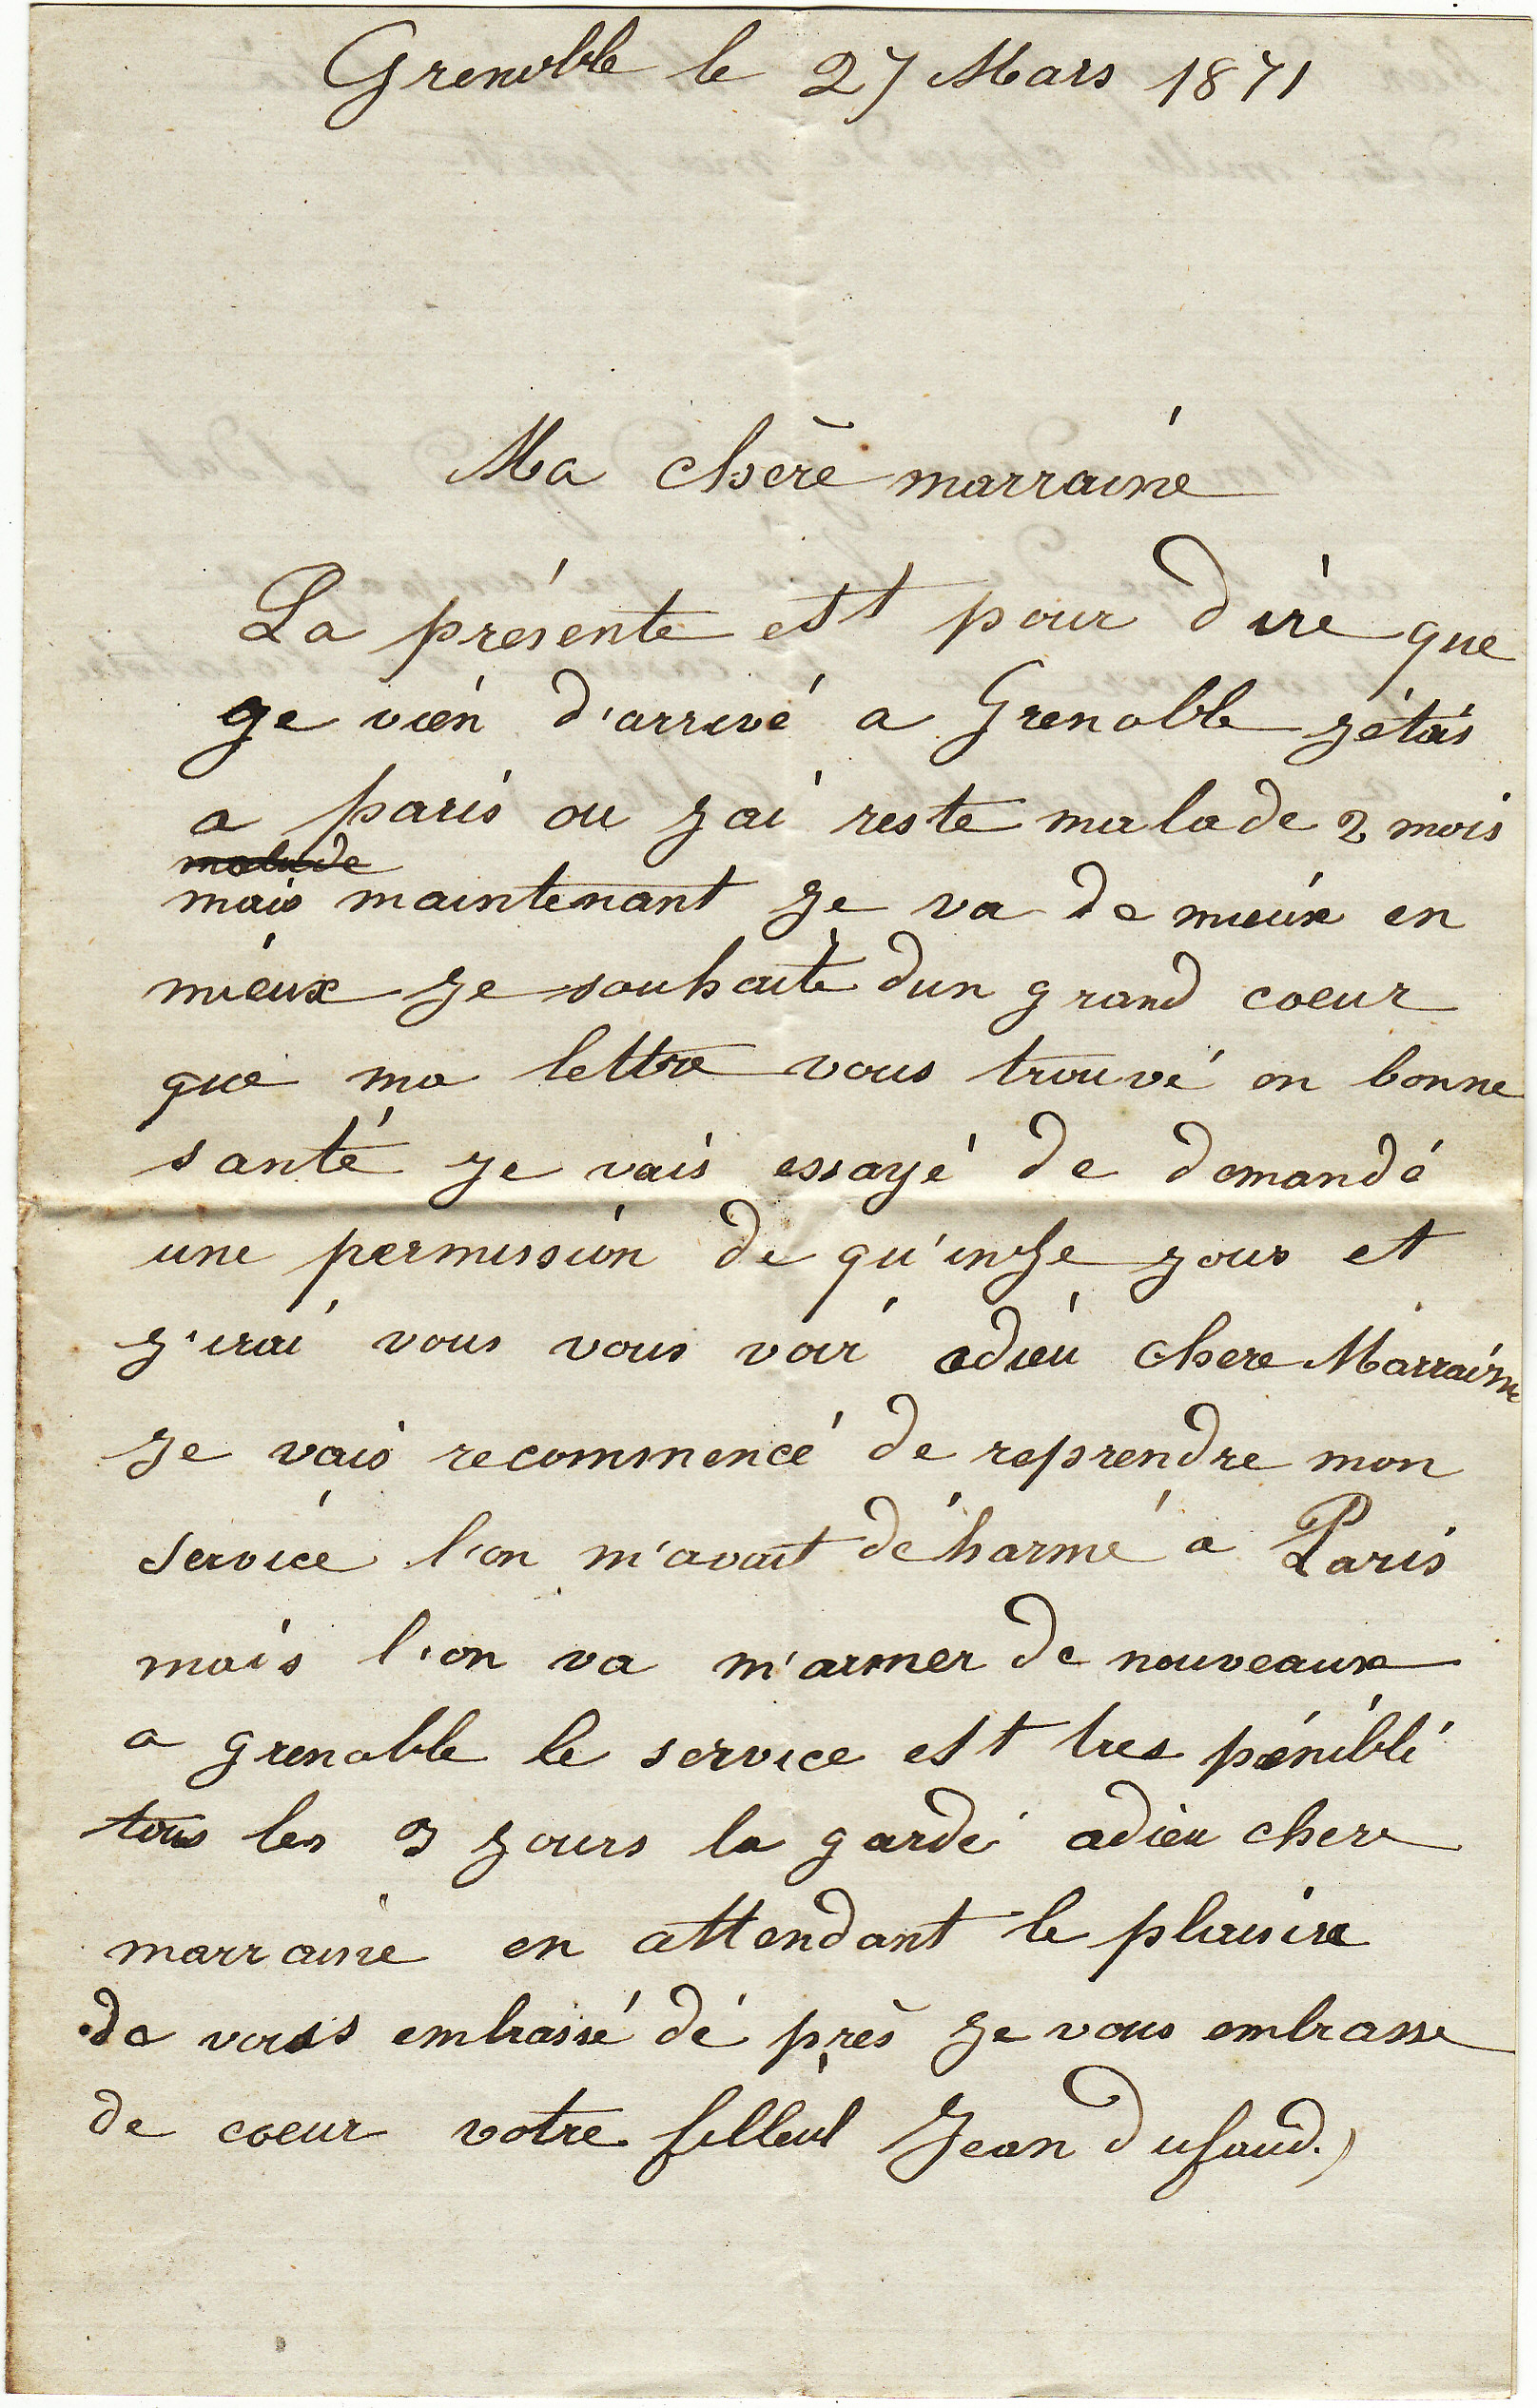 Grenoble le 27 Mars 1871
Ma chère marraine
La présente est pour dire que
je vien d'arrivé a Grenoble j'étais
a paris ou j'ai reste malade 2 mois
malade
mais maintenant je va de mieux en
mieux je souhaite dun grand coeur
que ma lettre vous trouvé en bonne
santé je vais essayé de demandé
une permission de qu'inze jours et
j'irai vous vous voir adieu chere Marraine
je vais recommencé de reprendre mon
service l'on m'avait déharmé a Paris
mais l'on va m'armer de nouveaux
a grenoble le service est tres pénible
tous les 3 jours la garde adieu chere
marraine en attendant le plaisire
de vous embrassé dé près je vous embrasse
de coeur votre filleul Jean Dufaud.